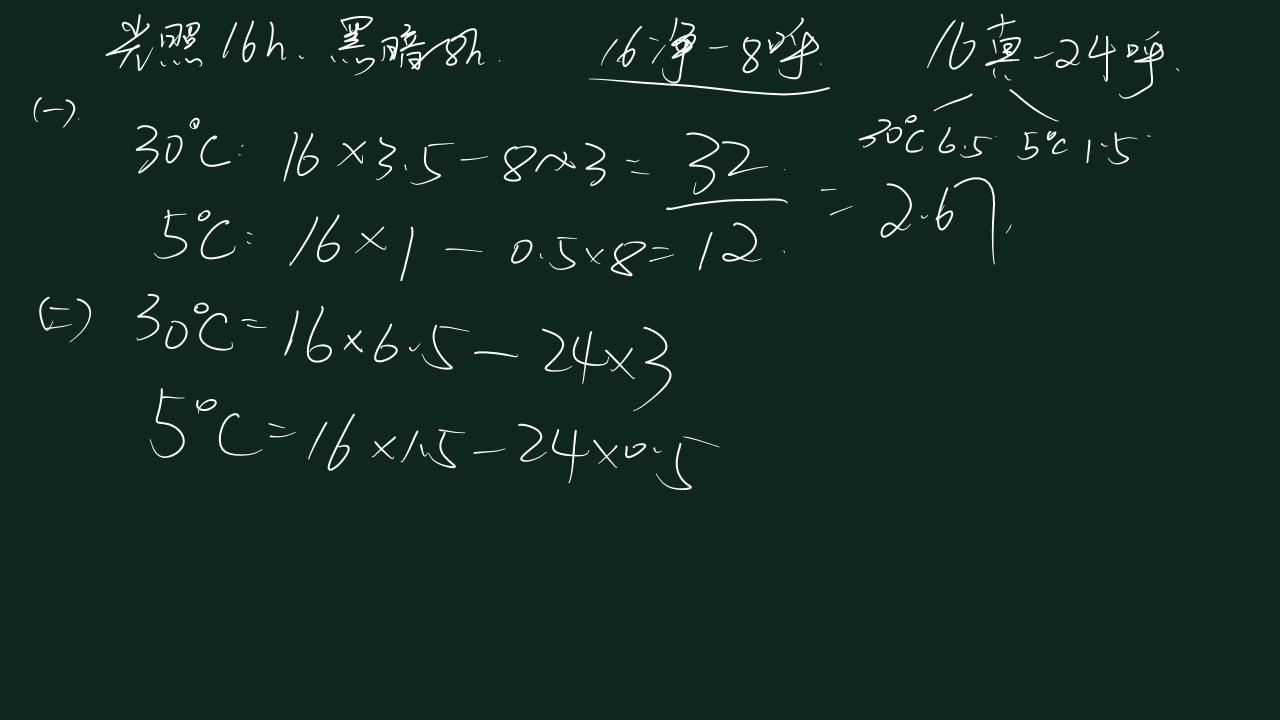 光照16h、黑暗8h. 16净-8呼. 16真-24呼.
(一). 30℃ 6.5 5℃ 1.5
30℃: 16×3.5-8×3=32 =2.67.
5℃: 16×1-0.5×8=12.
(二) 30℃=16×6.5-24×3
5℃=16×1.5-24×0.5